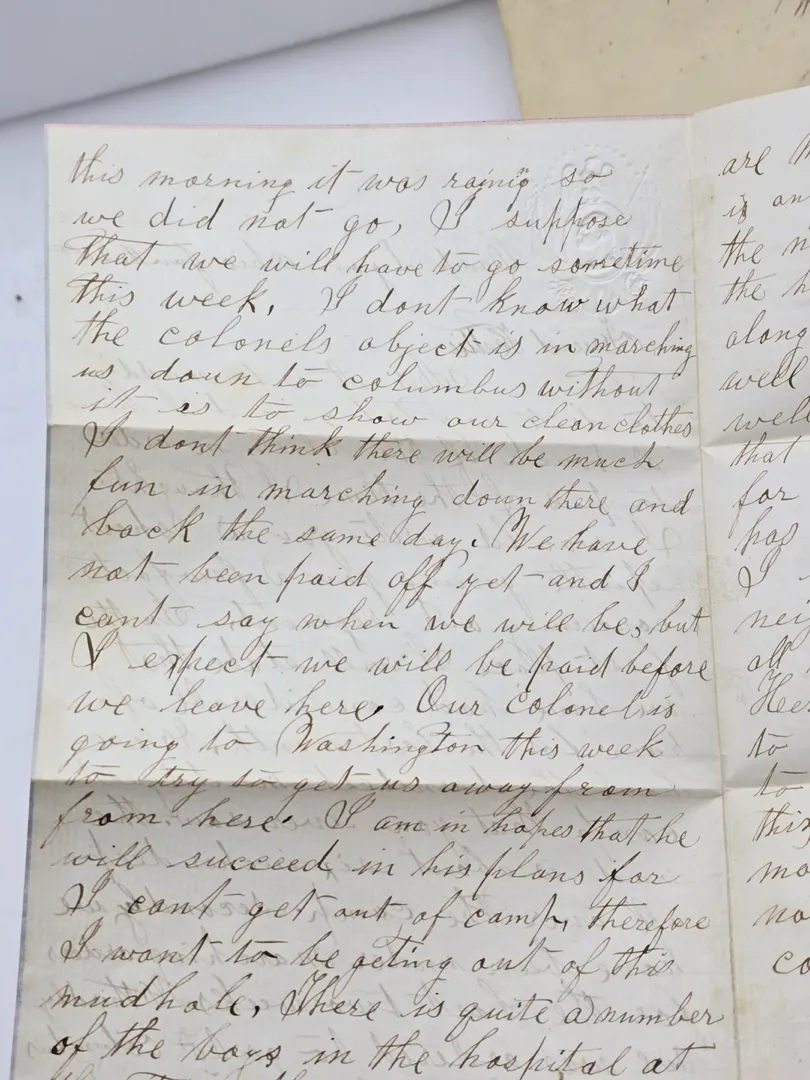 this morning it was raining so
we did not go, I suppose
that we will have to go sometime
this week, I dont know what
the colonels object is in marching
us down to columbus without
it is to show our clean clothes
I dont think there will be much
fun in marching down there and
back the same day. We have
not been paid off yet and I
cant say when we will be, but
I expect we will be paid before
we leave here. Our colonel is
going to Washington this week
to try to get us away from
from here. I am in hopes that he
will succeed in his plans for
I cant get out of camp, therefore
I want to be geting out of this
mudhole, There is quite a number
of the boys in the hospital at
are
is an
the
the
along
well
well
that
for
has
I
all
Her
to
to
this